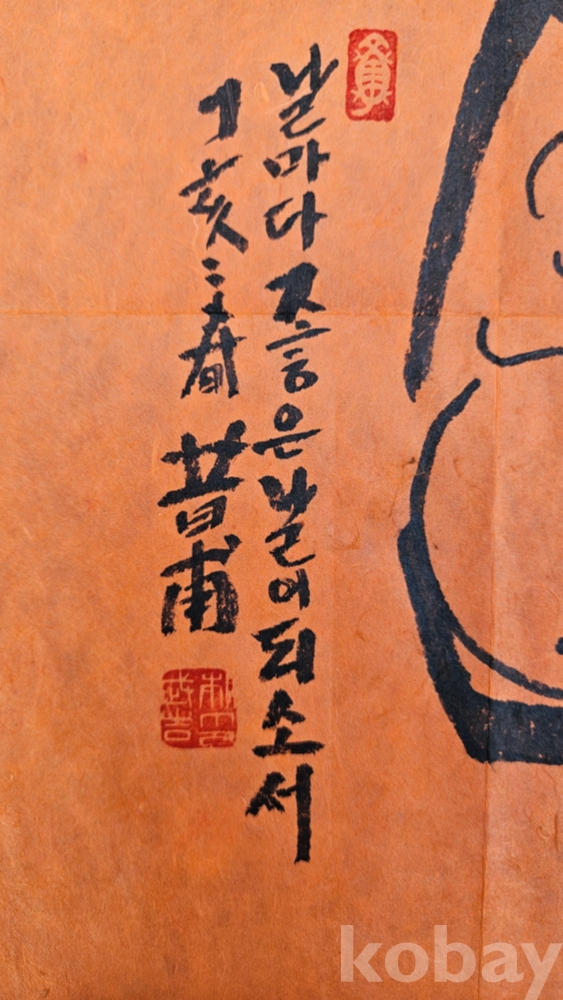 날마다 좋은 날이 되소서
丁亥 春 昔甫
kobay